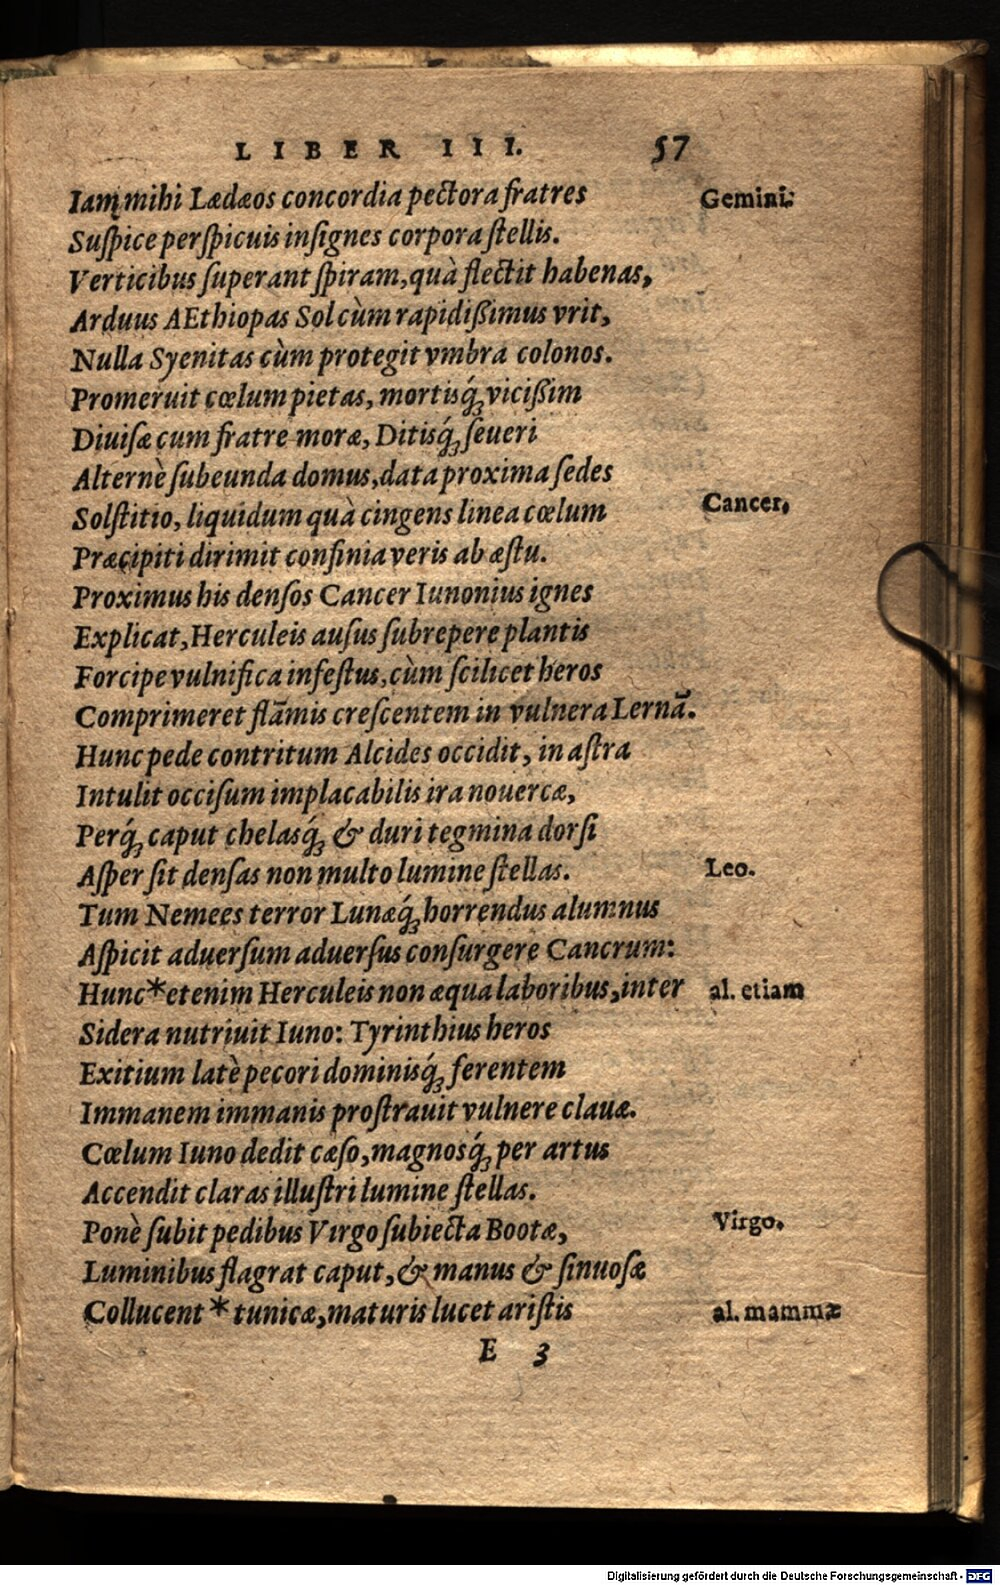 LIBER III. 57
Iam mihi Lædæos concordia pectora fratres Gemini.
Suſpice perſpicuis inſignes corpora ſtellis.
Verticibus ſuperant ſpiram, quà flectit habenas,
Arduus AEthiopas Sol cùm rapidißimus vrit,
Nulla Syenitas cùm protegit vmbra colonos.
Promeruit cœlum pietas, mortisq́; vicißim
Diuiſæ cum fratre moræ, Ditisq́; ſeueri
Alternè ſubeunda domus, data proxima ſedes
Solſtitio, liquidum quà cingens linea cœlum Cancer.
Præcipiti dirimit confinia veris ab æſtu.
Proximus his denſos Cancer Iunonius ignes
Explicat, Herculeis auſus ſubrepere plantis
Forcipe vulnifica infeſtus, cùm ſcilicet heros
Comprimeret flāmis creſcentem in vulnera Lernā.
Hunc pede contritum Alcides occidit, in aſtra
Intulit occiſum implacabilis ira nouercæ,
Perq́; caput chelasq́; & duri tegmina dorſi
Aſper ſit denſas non multo lumine ſtellas. Leo.
Tum Nemees terror Lunæq́; horrendus alumnus
Aſpicit aduerſum aduerſus conſurgere Cancrum:
Hunc*etenim Herculeis non æqua laboribus, inter al. etiam
Sidera nutriuit Iuno: Tyrinthius heros
Exitium latè pecori dominisq́; ferentem
Immanem immanis proſtrauit vulnere clauæ.
Cœlum Iuno dedit cæſo, magnosq́; per artus
Accendit claras illuſtri lumine ſtellas.
Ponè ſubit pedibus Virgo ſubiecta Bootæ, Virgo.
Luminibus flagrat caput, & manus & ſinuoſæ
Collucent * tunicæ, maturis lucet ariſtis al. mammæ
E 3
Digitalisierung gefördert durch die Deutsche Forschungsgemeinschaft - DFG